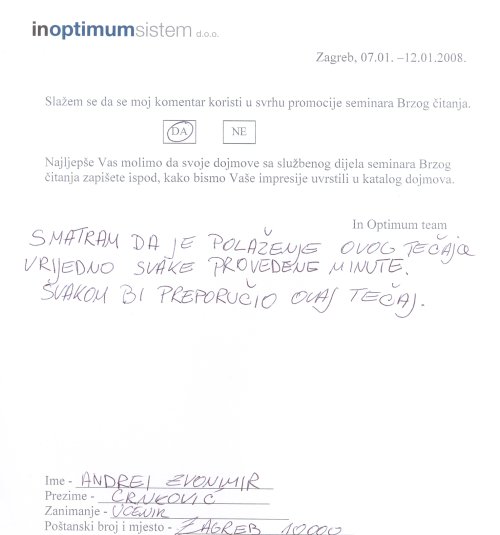 inoptimumsistem d.o.o.
Zagreb, 07.01. –12.01.2008.
Slažem se da se moj komentar koristi u svrhu promocije seminara Brzog čitanja.
DA NE
Najljepše Vas molimo da svoje dojmove sa službenog dijela seminara Brzog
čitanja zapišete ispod, kako bismo Vaše impresije uvrstili u katalog dojmova.
In Optimum team
SMATRAM DA JE POLAŽENJE OVOG TEČAJA
VRIJEDNO SVAKE PROVEDENE MINUTE.
SVAKOM BI PREPORUČIO OVAJ TEČAJ.
Ime - ANDREI ZVONIMIR
Prezime - CRNKOVIĆ
Zanimanje - UČENIK
Poštanski broj i mjesto - ZAGREB 10000